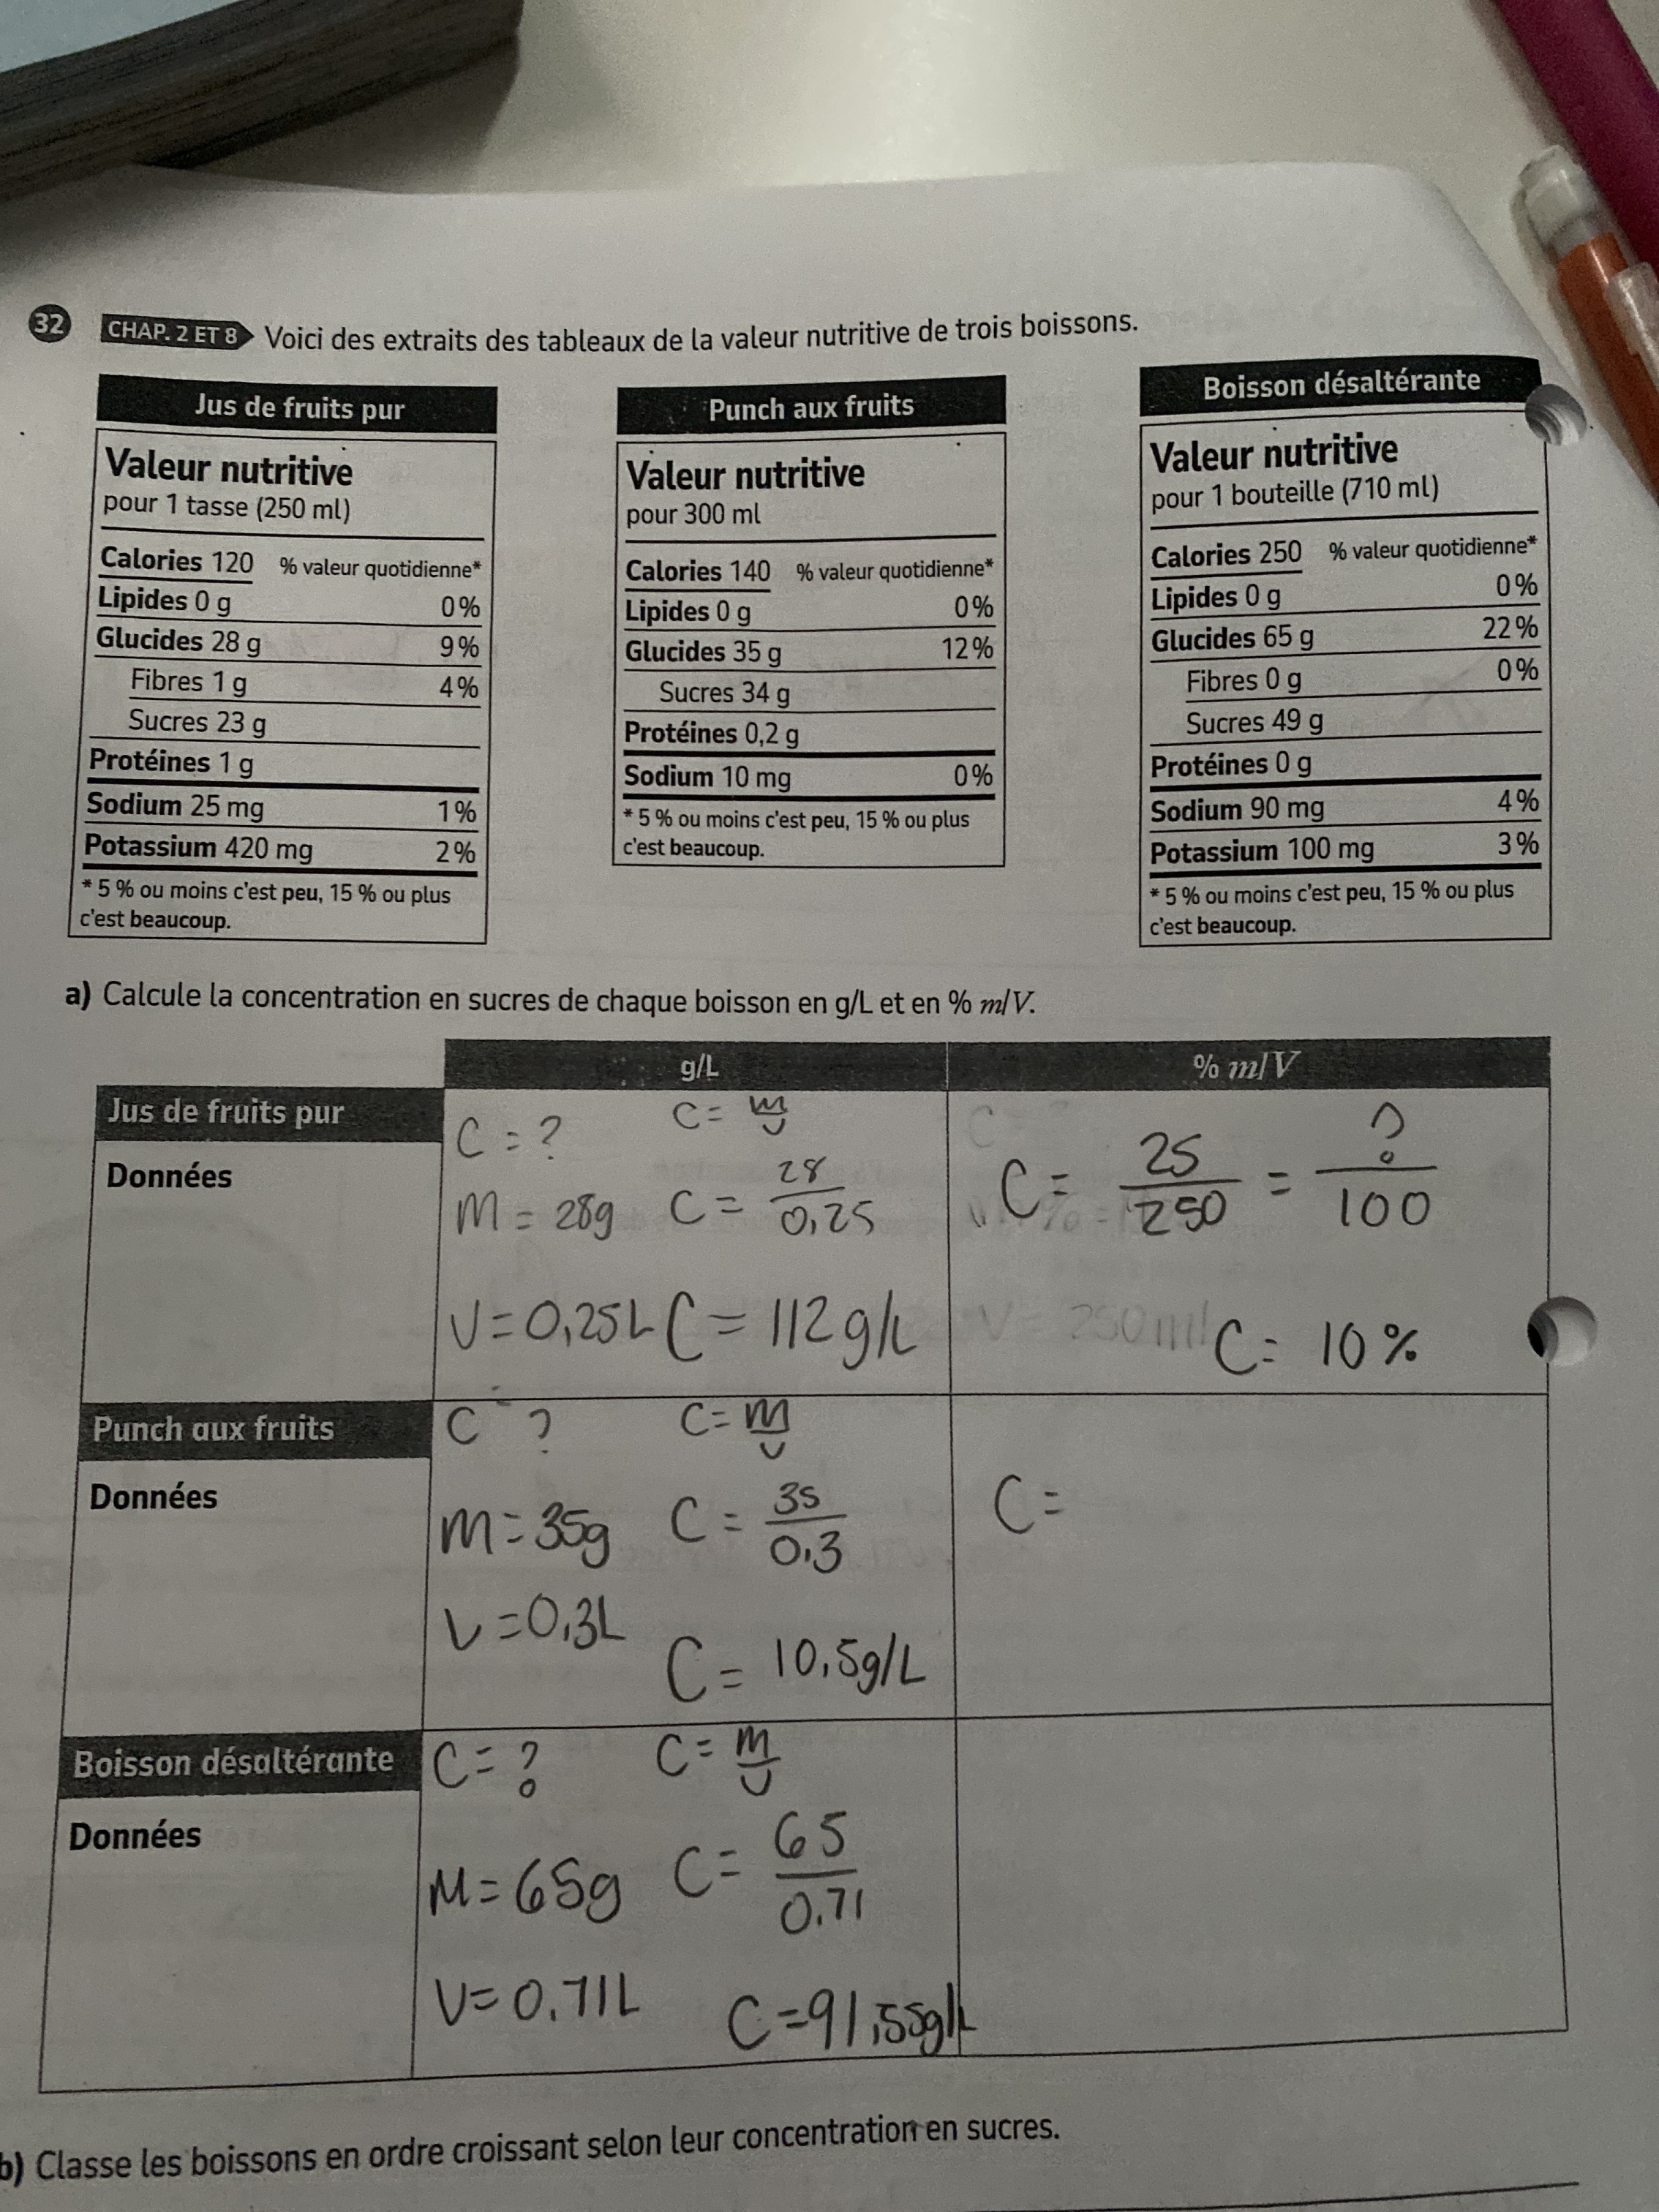 32 CHAP. 2 ET 8 Voici des extraits des tableaux de la valeur nutritive de trois boissons.
Jus de fruits pur
Valeur nutritive
pour 1 tasse (250 ml)
Calories 120 % valeur quotidienne*
Lipides 0 g 0 %
Glucides 28 g 9 %
Fibres 1 g 4 %
Sucres 23 g
Protéines 1 g
Sodium 25 mg 1 %
Potassium 420 mg 2 %
* 5 % ou moins c'est peu, 15 % ou plus
c'est beaucoup.
Punch aux fruits
Valeur nutritive
pour 300 ml
Calories 140 % valeur quotidienne*
Lipides 0 g 0 %
Glucides 35 g 12 %
Sucres 34 g
Protéines 0,2 g
Sodium 10 mg 0 %
* 5 % ou moins c'est peu, 15 % ou plus
c'est beaucoup.
Boisson désaltérante
Valeur nutritive
pour 1 bouteille (710 ml)
Calories 250 % valeur quotidienne*
Lipides 0 g 0 %
Glucides 65 g 22 %
Fibres 0 g 0 %
Sucres 49 g
Protéines 0 g
Sodium 90 mg 4 %
Potassium 100 mg 3 %
* 5 % ou moins c'est peu, 15 % ou plus
c'est beaucoup.
a) Calcule la concentration en sucres de chaque boisson en g/L et en % m/V.
g/L % m/V
Jus de fruits pur
Données
C = ? C = m/v
m = 28g C = 28/0,25
V = 0,25L C = 112 g/L
C = 25/250 = ?/100
V = 250 ml
C = 10 %
Punch aux fruits
Données
C ? C = m/v
m = 35g C = 35/0.3
V = 0,3L
C = 10,5g/L
C =
Boisson désaltérante
Données
C = ? C = m/v
M = 65g C = 65/0.71
V = 0.71L C = 91,55g/L
b) Classe les boissons en ordre croissant selon leur concentration en sucres.